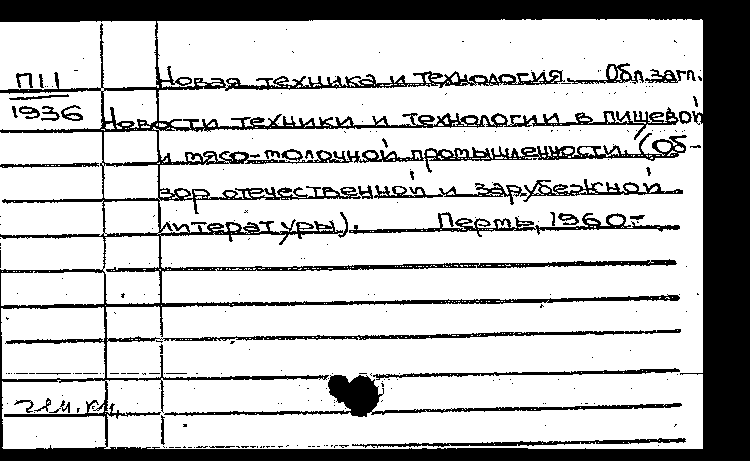 П11 Новая техника и технология. Обл.загл.
1936 Новости техники и технологии в пищевой
и мясо-молочной промышленности. (Об-
зор отечественной и зарубежной
литературы). Пермь, 1960-